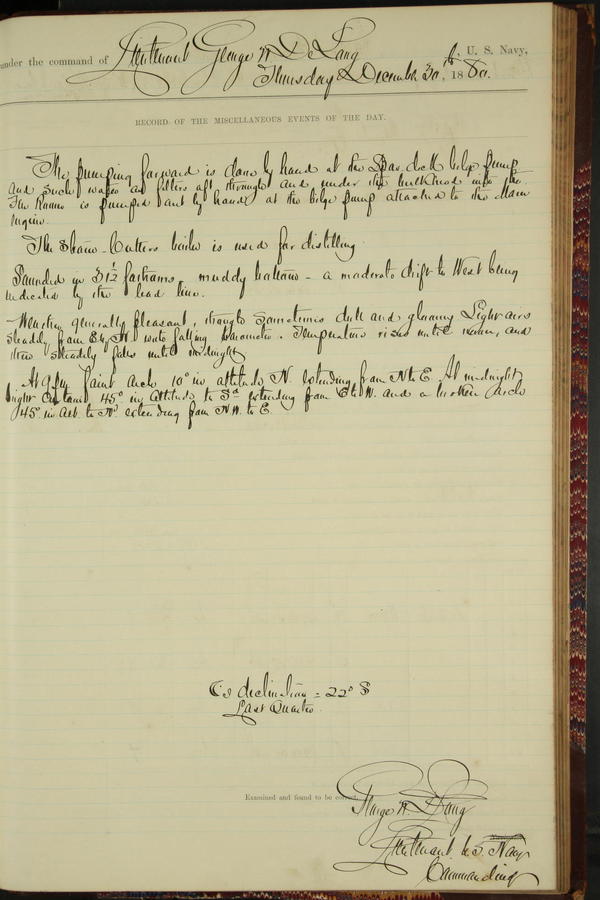 under the command of Lieutenant George W. De Long, U. S. Navy,
Thursday December 30th, 1880.
RECORD OF THE MISCELLANEOUS EVENTS OF THE DAY.
The pumping forward is done by hand at the Spar deck bilge pump
and such water as filters aft through and under the bulkhead into the
Fire Room is pumped out by hand at the bilge pump attached to the Main
Engine.
The Steam-Cutters boiler is used for distilling.
Sounded in 31½ fathoms, muddy bottom - a moderate drift to West being
indicated by the lead line.
Weather generally pleasant, though sometimes dull and gloomy. Light airs
steadily from with falling barometer. Temperature rises until noon, and
then steadily falls until midnight.
At 9 pm faint arch 10° in altitude N. extending from N to E. At midnight
bright curtain 45° in altitude to Sd extending from E to W. and a broken arch
45° in alt. to Nd extending from N.W. to E.
☾s declination = 22° S
Last Quarter.
Examined and found to be correct.
George W. De Long
Lieutenant U.S. Navy
Commanding